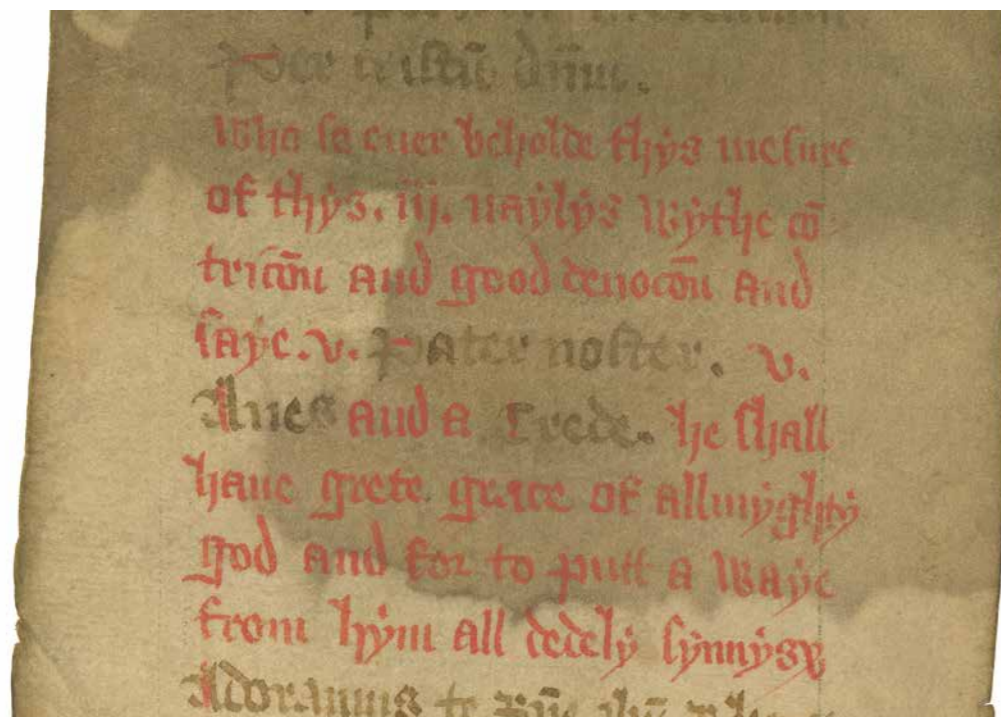 per cristū dnm̄.
Who so euer beholde thys mesure
of thys. iij. naylys wythe cō
tricōn and good deuocōn and
saye. v. Pater noster. v.
Aues and a Crede. he shall
haue grete grace of allmyghty
god and for to putt a waye
from hym all dedely synnys
Adoramus te